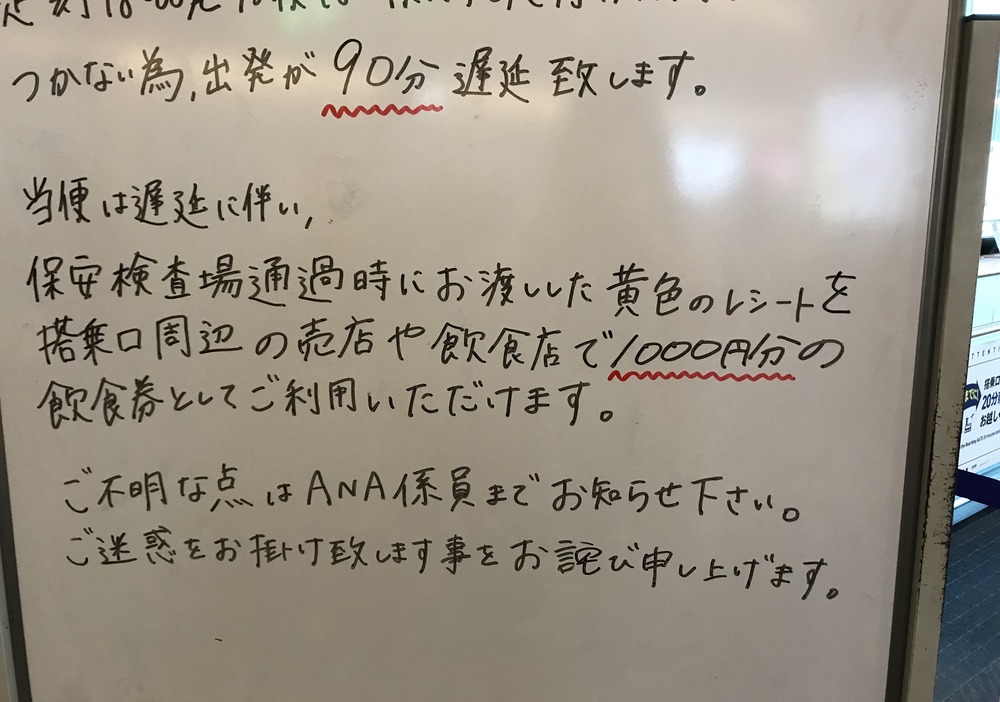 つかない為,出発が90分遅延致します。
当便は遅延に伴い,
保安検査場通過時にお渡しした黄色のレシートを
搭乗口周辺の売店や飲食店で1000円分の
飲食券としてご利用いただけます。
ご不明な点はANA係員までお知らせ下さい。
ご迷惑をお掛け致します事をお詫び申し上げます。
搭乗口
20分前
お越し